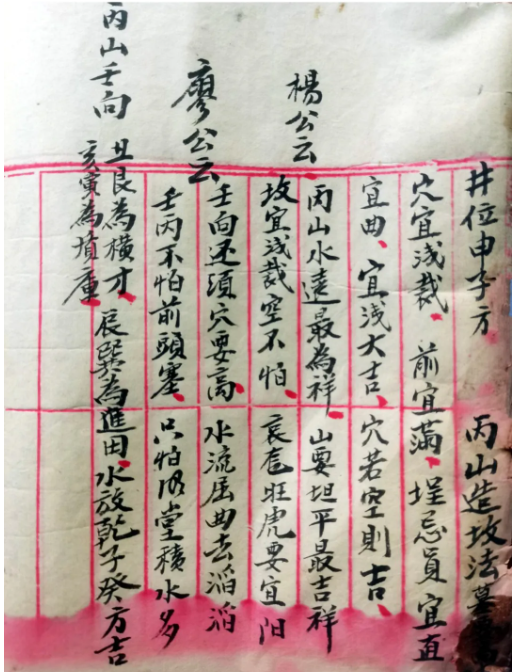 井位申子方 丙山造坟法墓
穴宜浅裁、前宜满、埕忌員宜直
宜曲、宜浅大吉、穴若空则吉、
楊公云、丙山水遠最為祥、山要坦平最吉祥
坟宜浅裁空不怕、哀 旺虎要宜阳
廖公云 壬向还須穴要高、水流屈曲去滔滔
壬丙不怕前頭塞、只怕明堂積水多
丙山壬向 丑艮為横才、辰巽為進田、水放乾子癸方吉
亥寅為 庫